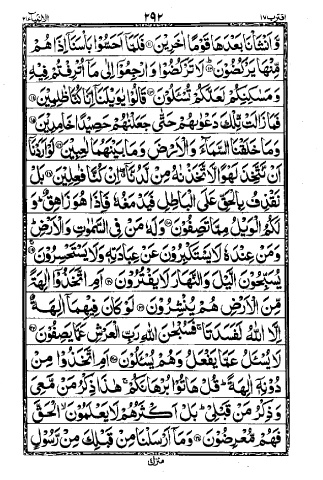 اقترب ١٧ ٢٩٢ الانبياء ٢١
وَّاَنْشَاْنَا بَعْدَهَا قَوْمًا اٰخَرِيْنَ ۝١١ فَلَمَّآ اَحَسُّوْا بَاْسَنَآ اِذَا هُمْ
مِّنْهَا يَرْكُضُوْنَ ۝١٢ لَا تَرْكُضُوْا وَارْجِعُوْٓا اِلٰى مَآ اُتْرِفْتُمْ فِيْهِ
وَمَسٰكِنِكُمْ لَعَلَّكُمْ تُسْـَٔلُوْنَ ۝١٣ قَالُوْا يٰوَيْلَنَآ اِنَّا كُنَّا ظٰلِمِيْنَ ۝١٤
فَمَا زَالَتْ تِّلْكَ دَعْوٰىهُمْ حَتّٰى جَعَلْنٰهُمْ حَصِيْدًا خٰمِدِيْنَ ۝١٥
وَمَا خَلَقْنَا السَّمَآءَ وَالْاَرْضَ وَمَا بَيْنَهُمَا لٰعِبِيْنَ ۝١٦ لَوْ اَرَدْنَآ
اَنْ نَّتَّخِذَ لَهْوًا لَّاتَّخَذْنٰهُ مِنْ لَّدُنَّآ ۖ اِنْ كُنَّا فٰعِلِيْنَ ۝١٧ بَلْ
نَقْذِفُ بِالْحَقِّ عَلَى الْبَاطِلِ فَيَدْمَغُهٗ فَاِذَا هُوَ زَاهِقٌ ؕ وَ
لَكُمُ الْوَيْلُ مِمَّا تَصِفُوْنَ ۝١٨ وَلَهٗ مَنْ فِى السَّمٰوٰتِ وَالْاَرْضِ ؕ
وَمَنْ عِنْدَهٗ لَا يَسْتَكْبِرُوْنَ عَنْ عِبَادَتِهٖ وَلَا يَسْتَحْسِرُوْنَ ۝١٩
يُسَبِّحُوْنَ الَّيْلَ وَالنَّهَارَ لَا يَفْتُرُوْنَ ۝٢٠ اَمِ اتَّخَذُوْٓا اٰلِهَةً
مِّنَ الْاَرْضِ هُمْ يُنْشِرُوْنَ ۝٢١ لَوْ كَانَ فِيْهِمَآ اٰلِهَةٌ
اِلَّا اللّٰهُ لَفَسَدَتَا ۚ فَسُبْحٰنَ اللّٰهِ رَبِّ الْعَرْشِ عَمَّا يَصِفُوْنَ ۝٢٢
لَا يُسْـَٔلُ عَمَّا يَفْعَلُ وَهُمْ يُسْـَٔلُوْنَ ۝٢٣ اَمِ اتَّخَذُوْا مِنْ
دُوْنِهٖٓ اٰلِهَةً ؕ قُلْ هَاتُوْا بُرْهَانَكُمْ ۚ هٰذَا ذِكْرُ مَنْ مَّعِىَ
وَذِكْرُ مَنْ قَبْلِىْ ؕ بَلْ اَكْثَرُهُمْ لَا يَعْلَمُوْنَ ۙ الْحَقَّ
فَهُمْ مُّعْرِضُوْنَ ۝٢٤ وَمَآ اَرْسَلْنَا مِنْ قَبْلِكَ مِنْ رَّسُوْلٍ
منزل ٤